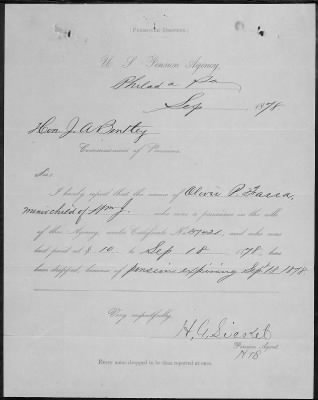 Pensioner Dropped.
U. S. Pension Agency,
Philad a Pa
Sep 1878
Hon. J. A. Bentley
Commissioner of Pensions.
Sir:
I hereby report that the name of Oliver P.
minor child of Wm J. who was a pensioner on the rolls
of this Agency under Certificate No. and who was
last paid at $ 10 to Sep 18 1878, has
been dropped, because of pension expiring Sep 18 1878
Very respectfully,
H. G. Sickel
Pension Agent
Every name dropped to be thus reported at once.